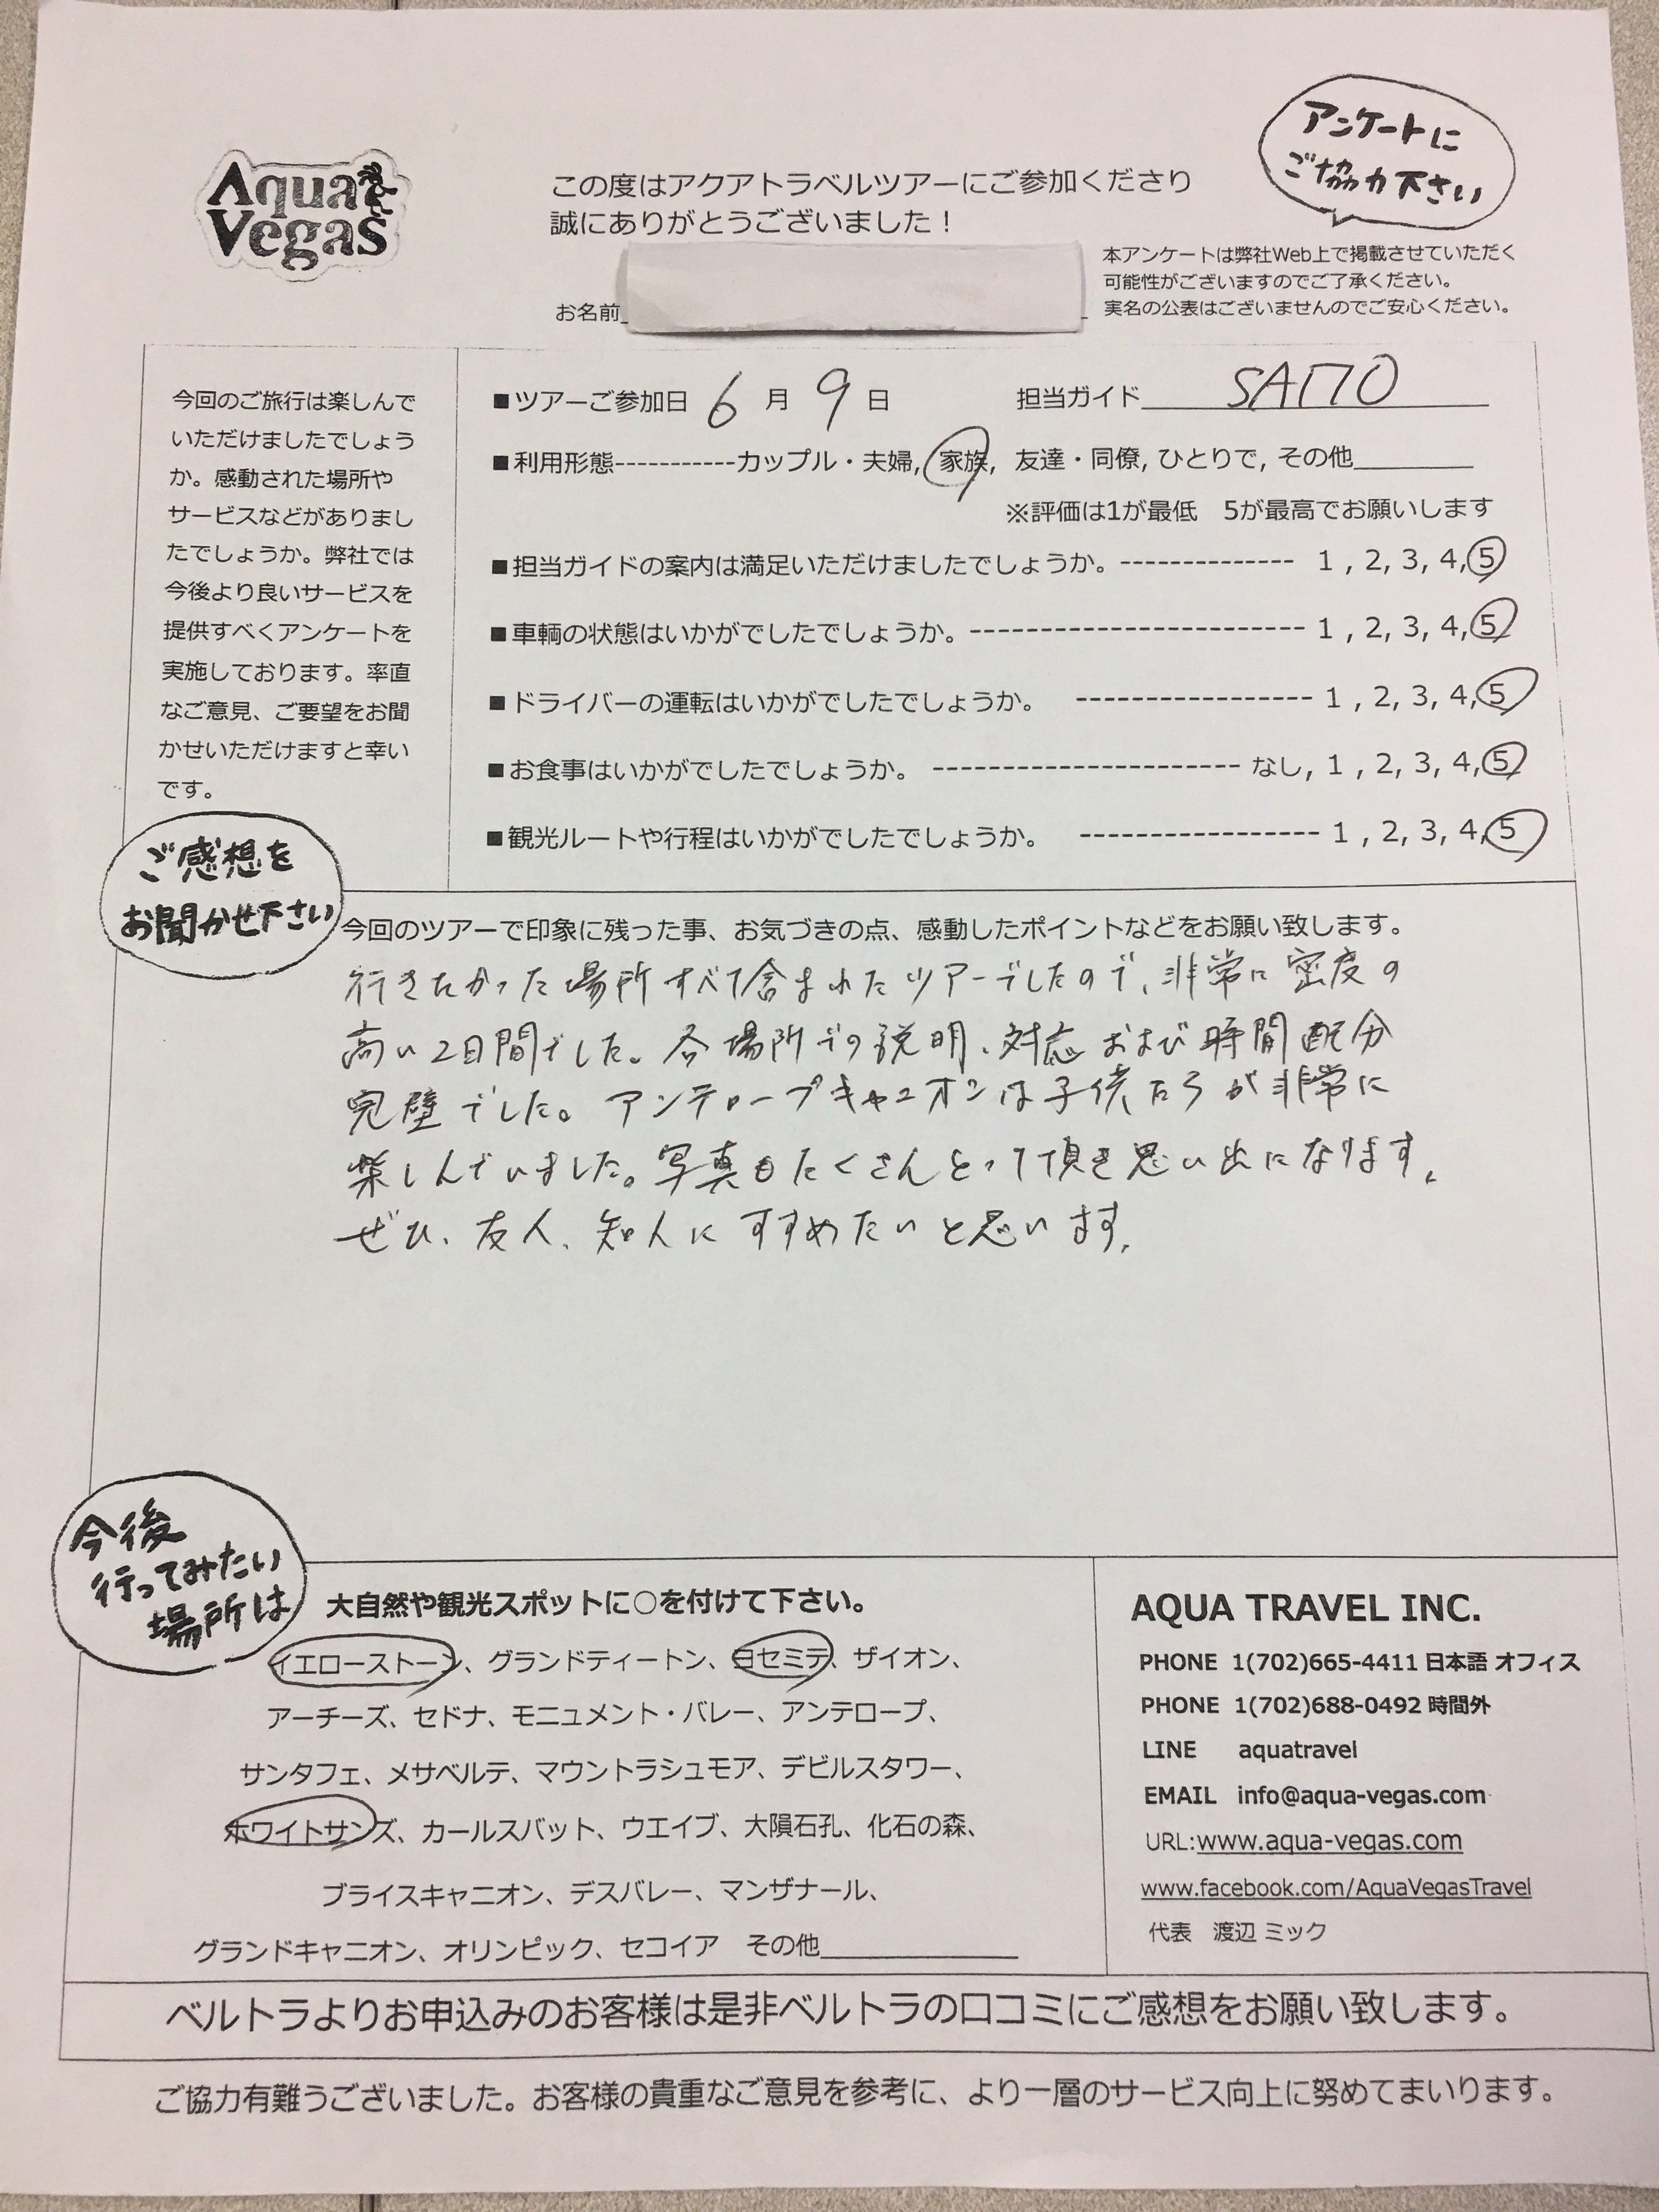 Aqua
Vegas
この度はアクアトラベルツアーにご参加くださり
誠にありがとうございました！
アンケートに
ご協力下さい
お名前
本アンケートは弊社Web上で掲載させていただく
可能性がございますのでご了承ください。
実名の公表はございませんのでご安心ください。
今回のご旅行は楽しんで
いただけましたでしょう
か。感動された場所や
サービスなどがありまし
たでしょうか。弊社では
今後より良いサービスを
提供すべくアンケートを
実施しております。率直
なご意見、ご要望をお聞
かせいただけますと幸い
です。
■ツアーご参加日 6 月 9 日 担当ガイド SAITO
■利用形態-----------カップル・夫婦, 家族, 友達・同僚, ひとりで, その他
※評価は1が最低 5が最高でお願いします
■担当ガイドの案内は満足いただけましたでしょうか。-------------- 1 , 2, 3, 4, 5
■車輌の状態はいかがでしたでしょうか。------------------------ 1 , 2, 3, 4, 5
■ドライバーの運転はいかがでしたでしょうか。 ----------------- 1 , 2, 3, 4, 5
■お食事はいかがでしたでしょうか。 ---------------------- なし, 1 , 2, 3, 4, 5
■観光ルートや行程はいかがでしたでしょうか。 ----------------- 1 , 2, 3, 4, 5
ご感想を
お聞かせ下さい
今回のツアーで印象に残った事、お気づきの点、感動したポイントなどをお願い致します。
行きたかった場所すべて含まれたツアーでしたので、非常に密度の
高い2日間でした。各場所での説明、対応および時間配分
完璧でした。アンテロープキャニオンは子供たちが非常に
楽しんでいました。写真もたくさんとって頂き思い出になります。
ぜひ、友人、知人にすすめたいと思います。
今後
行ってみたい
場所は
大自然や観光スポットに○を付けて下さい。
イエローストーン、グランドティートン、ヨセミテ、ザイオン、
アーチーズ、セドナ、モニュメント・バレー、アンテロープ、
サンタフェ、メサベルテ、マウントラシュモア、デビルスタワー、
ホワイトサンズ、カールスバット、ウエイブ、大隕石孔、化石の森、
ブライスキャニオン、デスバレー、マンザナール、
グランドキャニオン、オリンピック、セコイア その他
AQUA TRAVEL INC.
PHONE 1(702)665-4411 日本語 オフィス
PHONE 1(702)688-0492 時間外
LINE aquatravel
EMAIL info@aqua-vegas.com
URL:www.aqua-vegas.com
www.facebook.com/AquaVegasTravel
代表 渡辺 ミック
ベルトラよりお申込みのお客様は是非ベルトラの口コミにご感想をお願い致します。
ご協力有難うございました。お客様の貴重なご意見を参考に、より一層のサービス向上に努めてまいります。